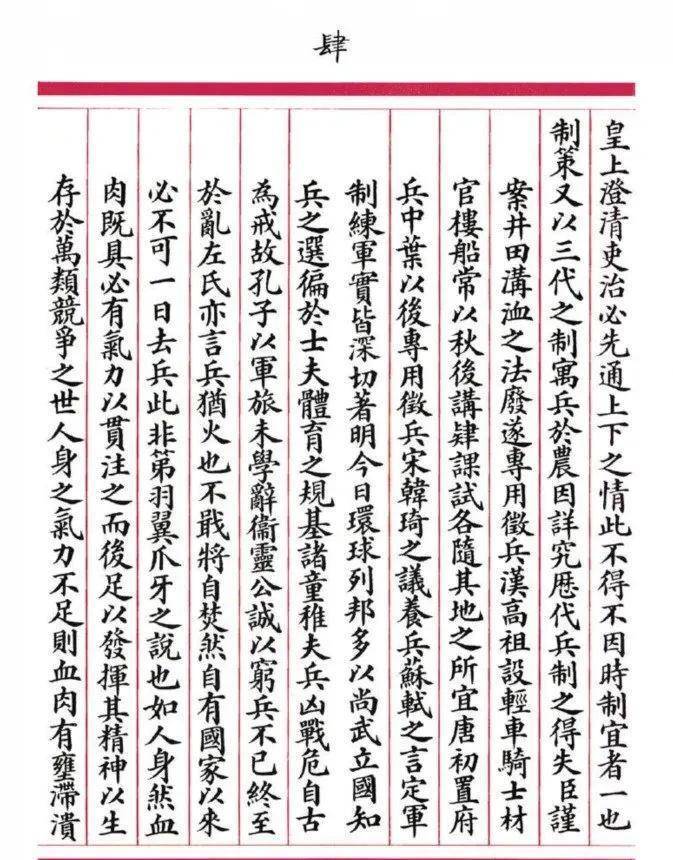 肆
皇上澄清吏治必先通上下之情此不得不因時制宜者一也
制策又以三代之制寓兵於農因詳究歷代兵制之得失臣謹
案井田溝洫之法廢遂專用徵兵漢高祖設輕車騎士材
官樓船常以秋後講肄課試各隨其地之所宜唐初置府
兵中葉以後專用徵兵宋韓琦之議養兵蘇軾之言定軍
制練軍實皆深切著明今日環球列邦多以尚武立國知
兵之選徧於士夫體育之規基諸童稚夫兵凶戰危自古
為戒故孔子以軍旅未學辭衞靈公誠以窮兵不已終至
於亂左氏亦言兵猶火也不戢將自焚然自有國家以來
必不可一日去兵此非第羽翼爪牙之說也如人身然血
肉既具必有氣力以貫注之而後足以發揮其精神以生
存於萬類競爭之世人身之氣力不足則血肉有壅滯潰